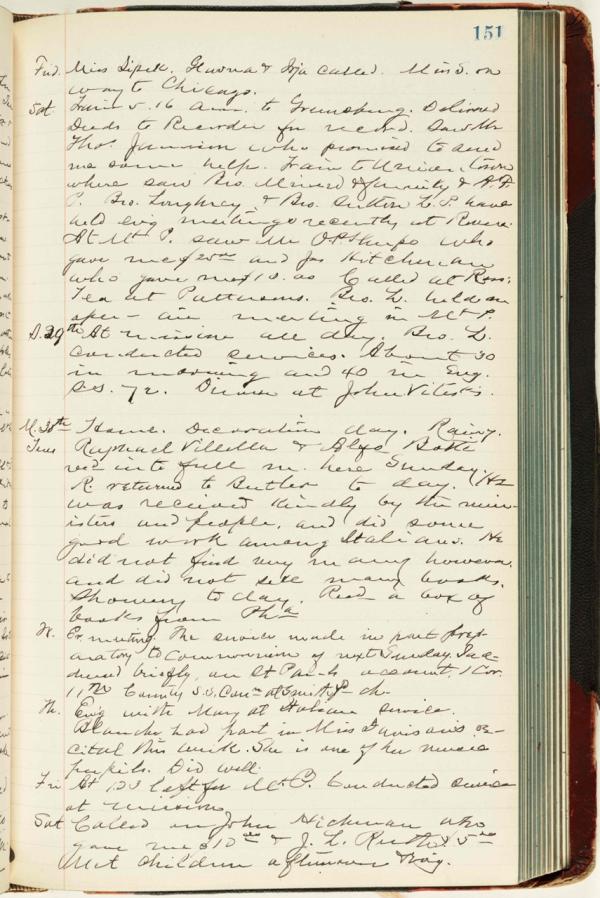 151
Frid. Miss Lipek. called. Miss S. on
way to Chicago.
Sat Train 5.16 a.m. to Greensburg. Delivered
Deeds to Recorder for record. Saw Mr
Thos. Jamison who promised to send
me some help. Train to Uniontown
where saw Bro. & &
P. Bro. Loughrey, & Bro. Sutton L.P. have
held evg meetings recently at
At Mt P. saw Mr who
gave me and Jas Hitchman
who gave me Called at
Tea at Pattersons. Bro. L. held an
open-air meeting in Mt P.
S. 29th At mission all day. Bro. L.
conducted services. About 30
in morning and 40 in Evg.
S.S. 72. Dinner at John
M. 30th Home. Decoration day. Rainy.
Tues Raphael Villella &
recd into full m. here Sunday.
R. returned to Butler to day. He
was received kindly by the min-
isters and people, and did some
good work among Italians. He
did not find very many however,
and did not sell many books.
Showery to day. Recd a box of
books from Pha
W. Ev. meeting. The service made in part prep-
aratory to Communion of next Sunday. I ad-
dressed briefly, on St Paul's account, 1 Cor.
11th County S.S. Conn at ch.
Th. Evg with Mary at Italian service.
Blanche had part in Miss Davison's re-
cital this week. She is one of her music
pupils. Did well.
Fri At 123 left for Mt P. Conducted service
at mission
Sat Called on John Hickman who
gave me & J. L.
Met children afternoon &